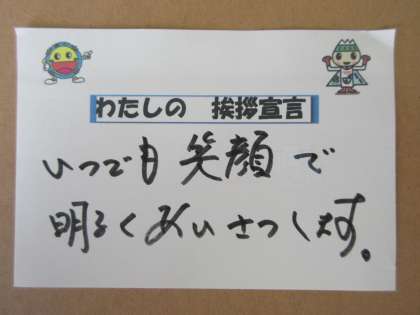 わたしの 挨拶宣言
いつでも笑顔で
明るくあいさつします。